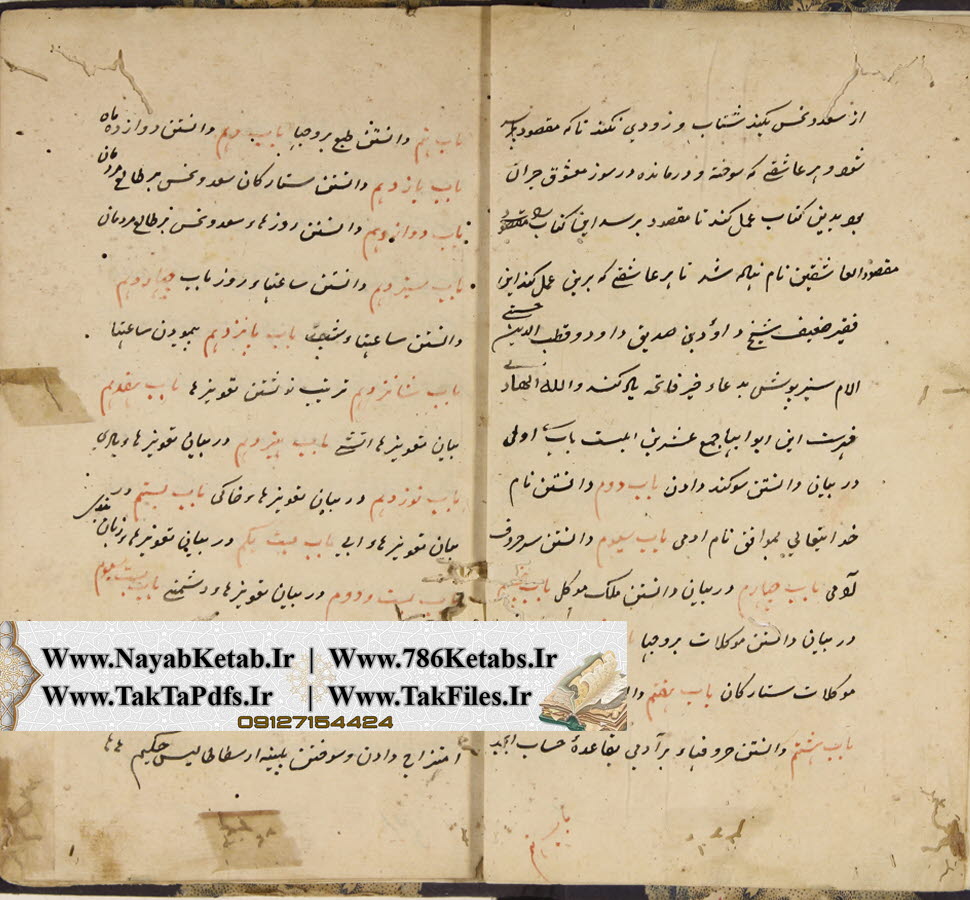 از سعد و نحس بکند شتاب و زودی نکند تا که مقصود
شود و هر عاشقے که سوخته و درمانده در سوز معشوق حیران
بدین کتاب عمل کند تا مقصود برسد این کتاب
مقصود العاشقین نام نهاده شد تا هر عاشقے که برین عمل کند این
فقیر ضعیف شیخ داؤد بن صدیق داود و قطب الدین
امام سبزپوش بدعاء خیر فاتحه یاد کنند والله الهادی
فهرست این ابوابها جمع عشرین است باب اولی
در بیان دانستن سوکند دادن باب دوم دانستن نام
خدایتعالی بموافق نام ادمی باب سیوم دانستن سرحروف
آدمی باب چهارم در بیان دانستن ملک موکل باب پنجم
در بیان دانستن موکلات بروجها
موکلات ستارکان باب هفتم
باب هشتم دانستن حروفهاء بر آدمی بقاعدهٔ حساب ابجد
باب نهم
باب نهم دانستن طبع بروجها باب دهم دانستن دوازده ماه
باب یازدهم دانستن ستارکان سعد و نحس بر طالع مردمان
باب دوازدهم دانستن روزهاء سعد و نحس بر طالع مردمان
باب سیزدهم دانستن ساعتهاء روز باب چهاردهم
دانستن ساعتهاء شب باب پانزدهم پیمودن ساعتها
باب شانزدهم ترتیب نوشتن تعویزها باب هفدهم
بیان تعویزها اتشے باب هیزدهم در بیان تعویزهاء بادی
باب نوزدهم در بیان تعویزهاء خاکی باب بیستم در
بیان تعویزهاء ابی باب بیست یکم در بیان تعویزهاء زبان بندی
باب بیست و دوم در بیان تعویزهاء دشمنے باب بیست سیوم
امتزاج دادن و سوختن پلیته ارسطاطالیس حکیم
Www.NayabKetab.Ir | Www.786Ketabs.Ir
Www.TakTaPdfs.Ir | Www.TakFiles.Ir
09127154424